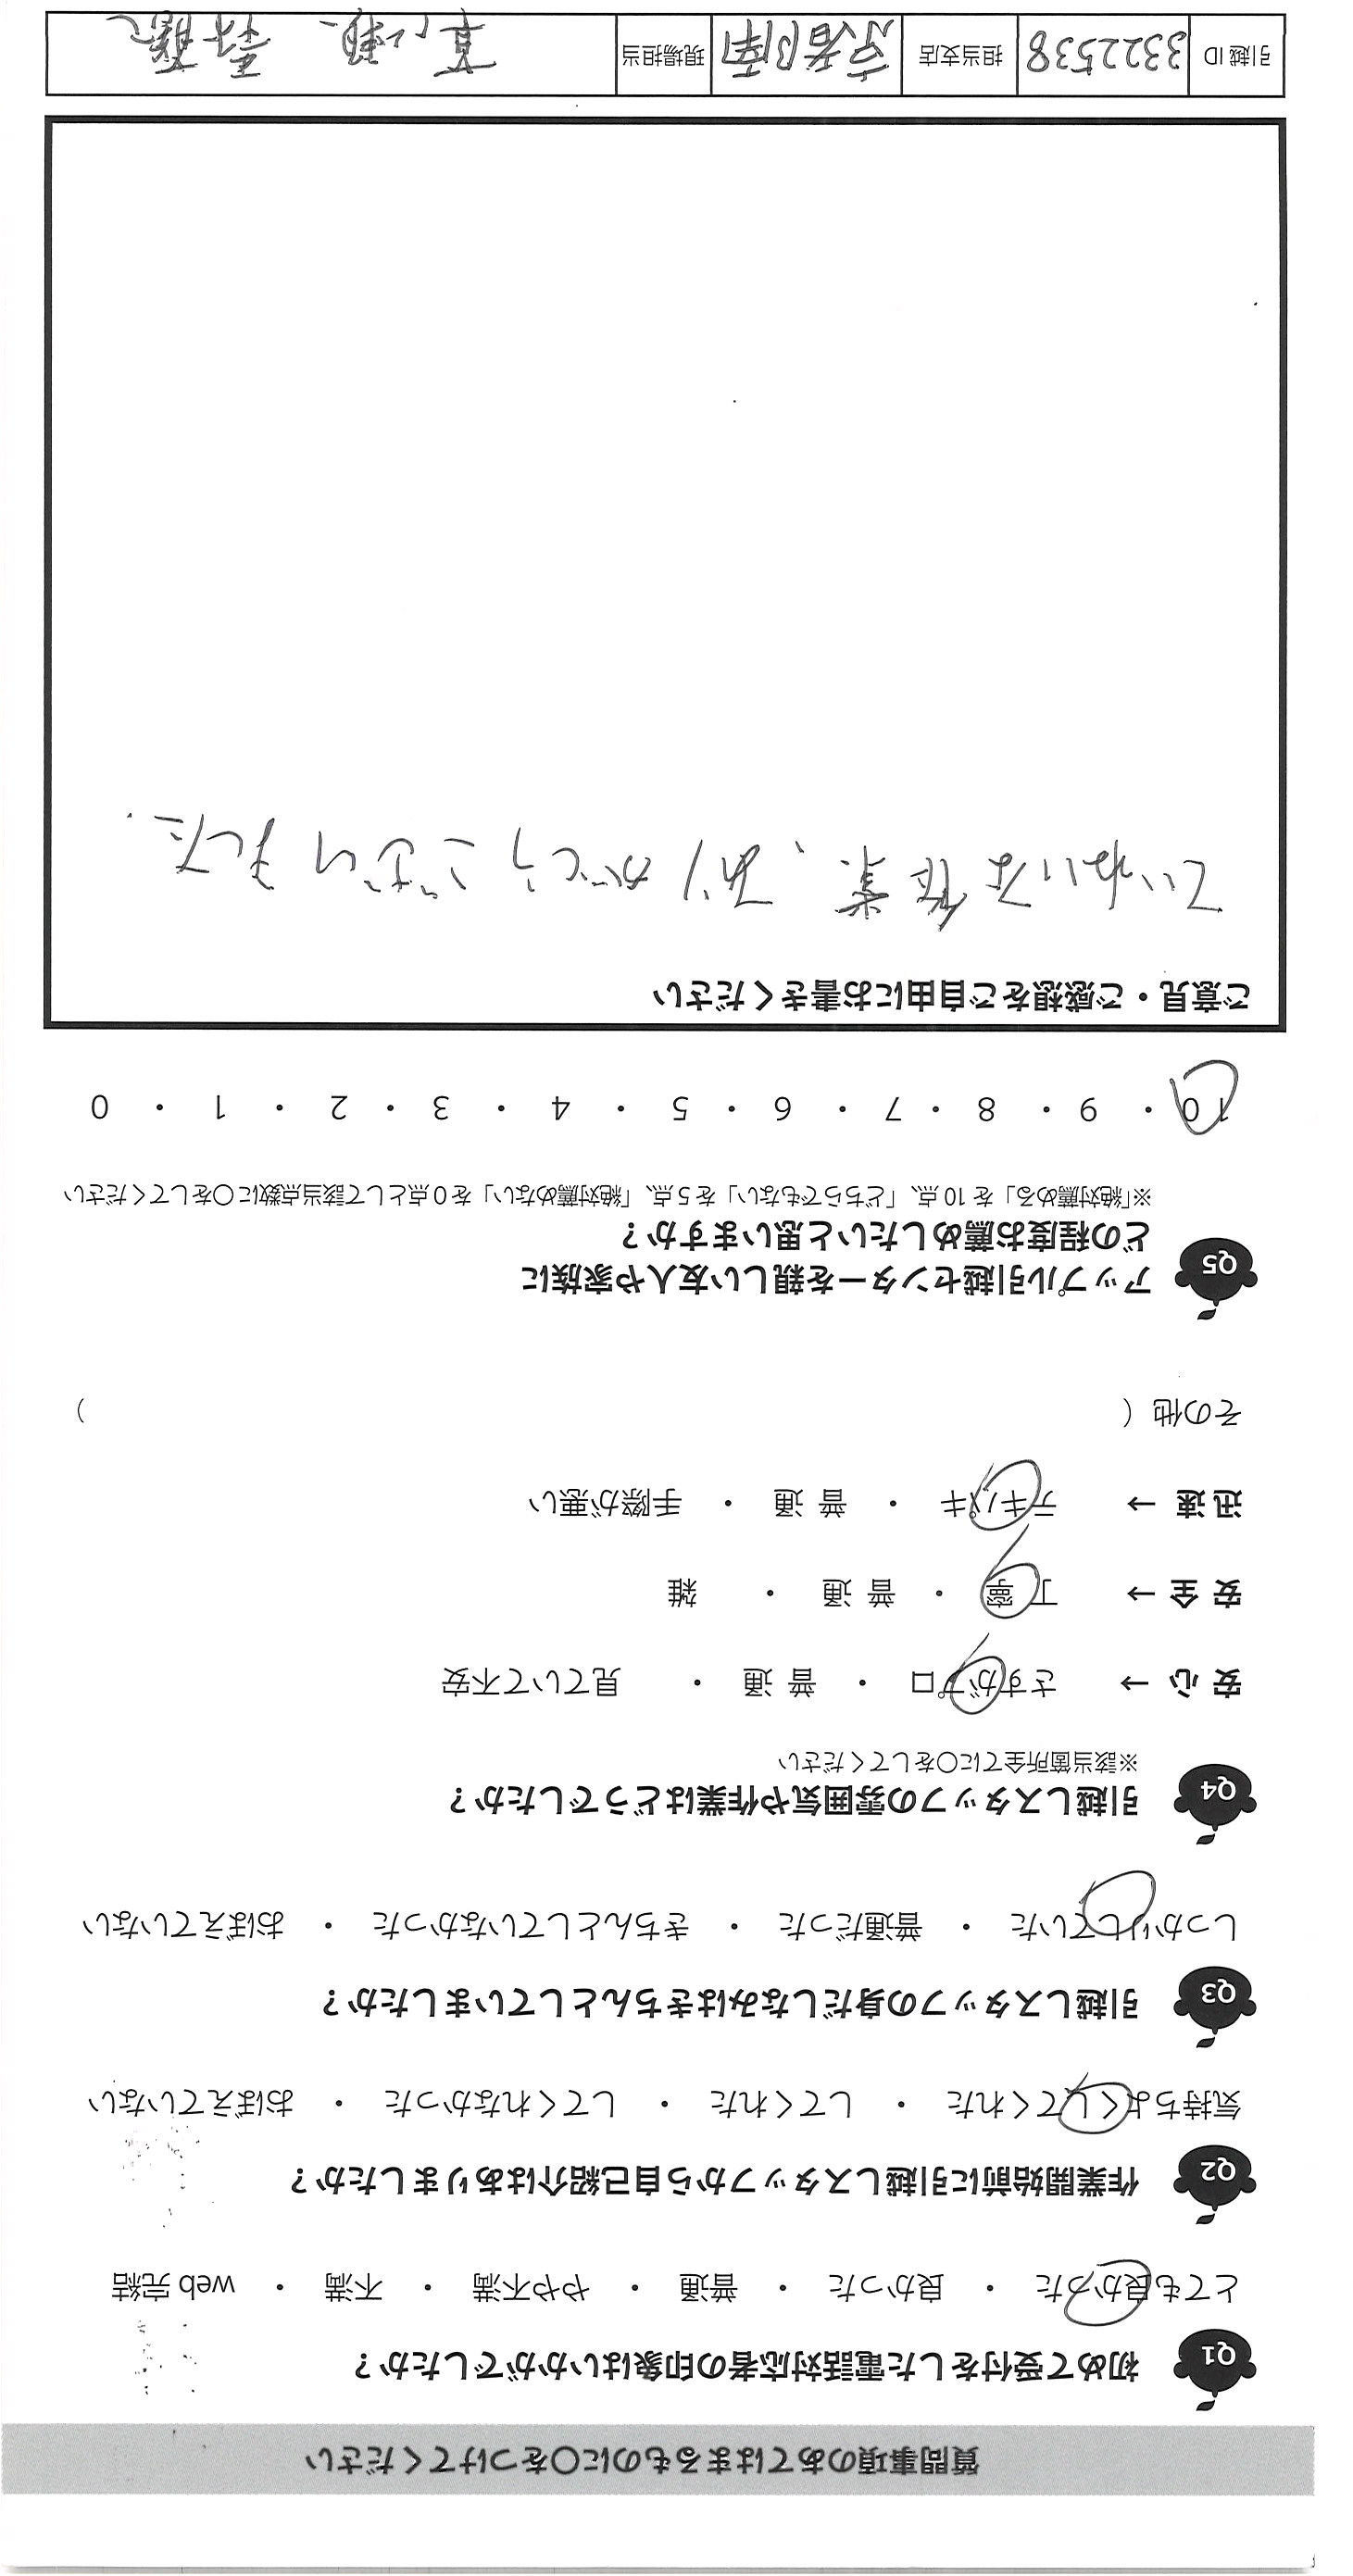 質問事項のあてはまるものに○をつけてください
Q1 初めて受付をした電話対応者の印象はいかがでしたか？
とても良かった ・ 良かった ・ 普通 ・ やや不満 ・ 不満 ・ web 完結
Q2 作業開始前に引越しスタッフから自己紹介はありましたか？
気持ちよくしてくれた ・ してくれた ・ してくれなかった ・ おぼえていない
Q3 引越しスタッフの身だしなみはきちんとしていましたか？
しっかりしていた ・ 普通だった ・ きちんとしていなかった ・ おぼえていない
Q4 引越しスタッフの雰囲気や作業はどうでしたか？
※該当箇所全てに○をしてください
安 心 → さすがプロ ・ 普 通 ・ 見ていて不安
安 全 → 丁 寧 ・ 普 通 ・ 雑
迅 速 → テキパキ ・ 普 通 ・ 手際が悪い
その他（ ）
Q5 アップル引越センターを親しい友人や家族に
どの程度お薦めしたいと思いますか？
※「絶対薦める」を 10 点、「どちらでもない」を 5 点、「絶対薦めない」を 0 点として該当点数に○をしてください
10 ・ 9 ・ 8 ・ 7 ・ 6 ・ 5 ・ 4 ・ 3 ・ 2 ・ 1 ・ 0
ご意見・ご感想をご自由にお書きください
ていねいな作業、ありがとうございました.
引越 ID 3322538 担当支店 京都南 現場担当